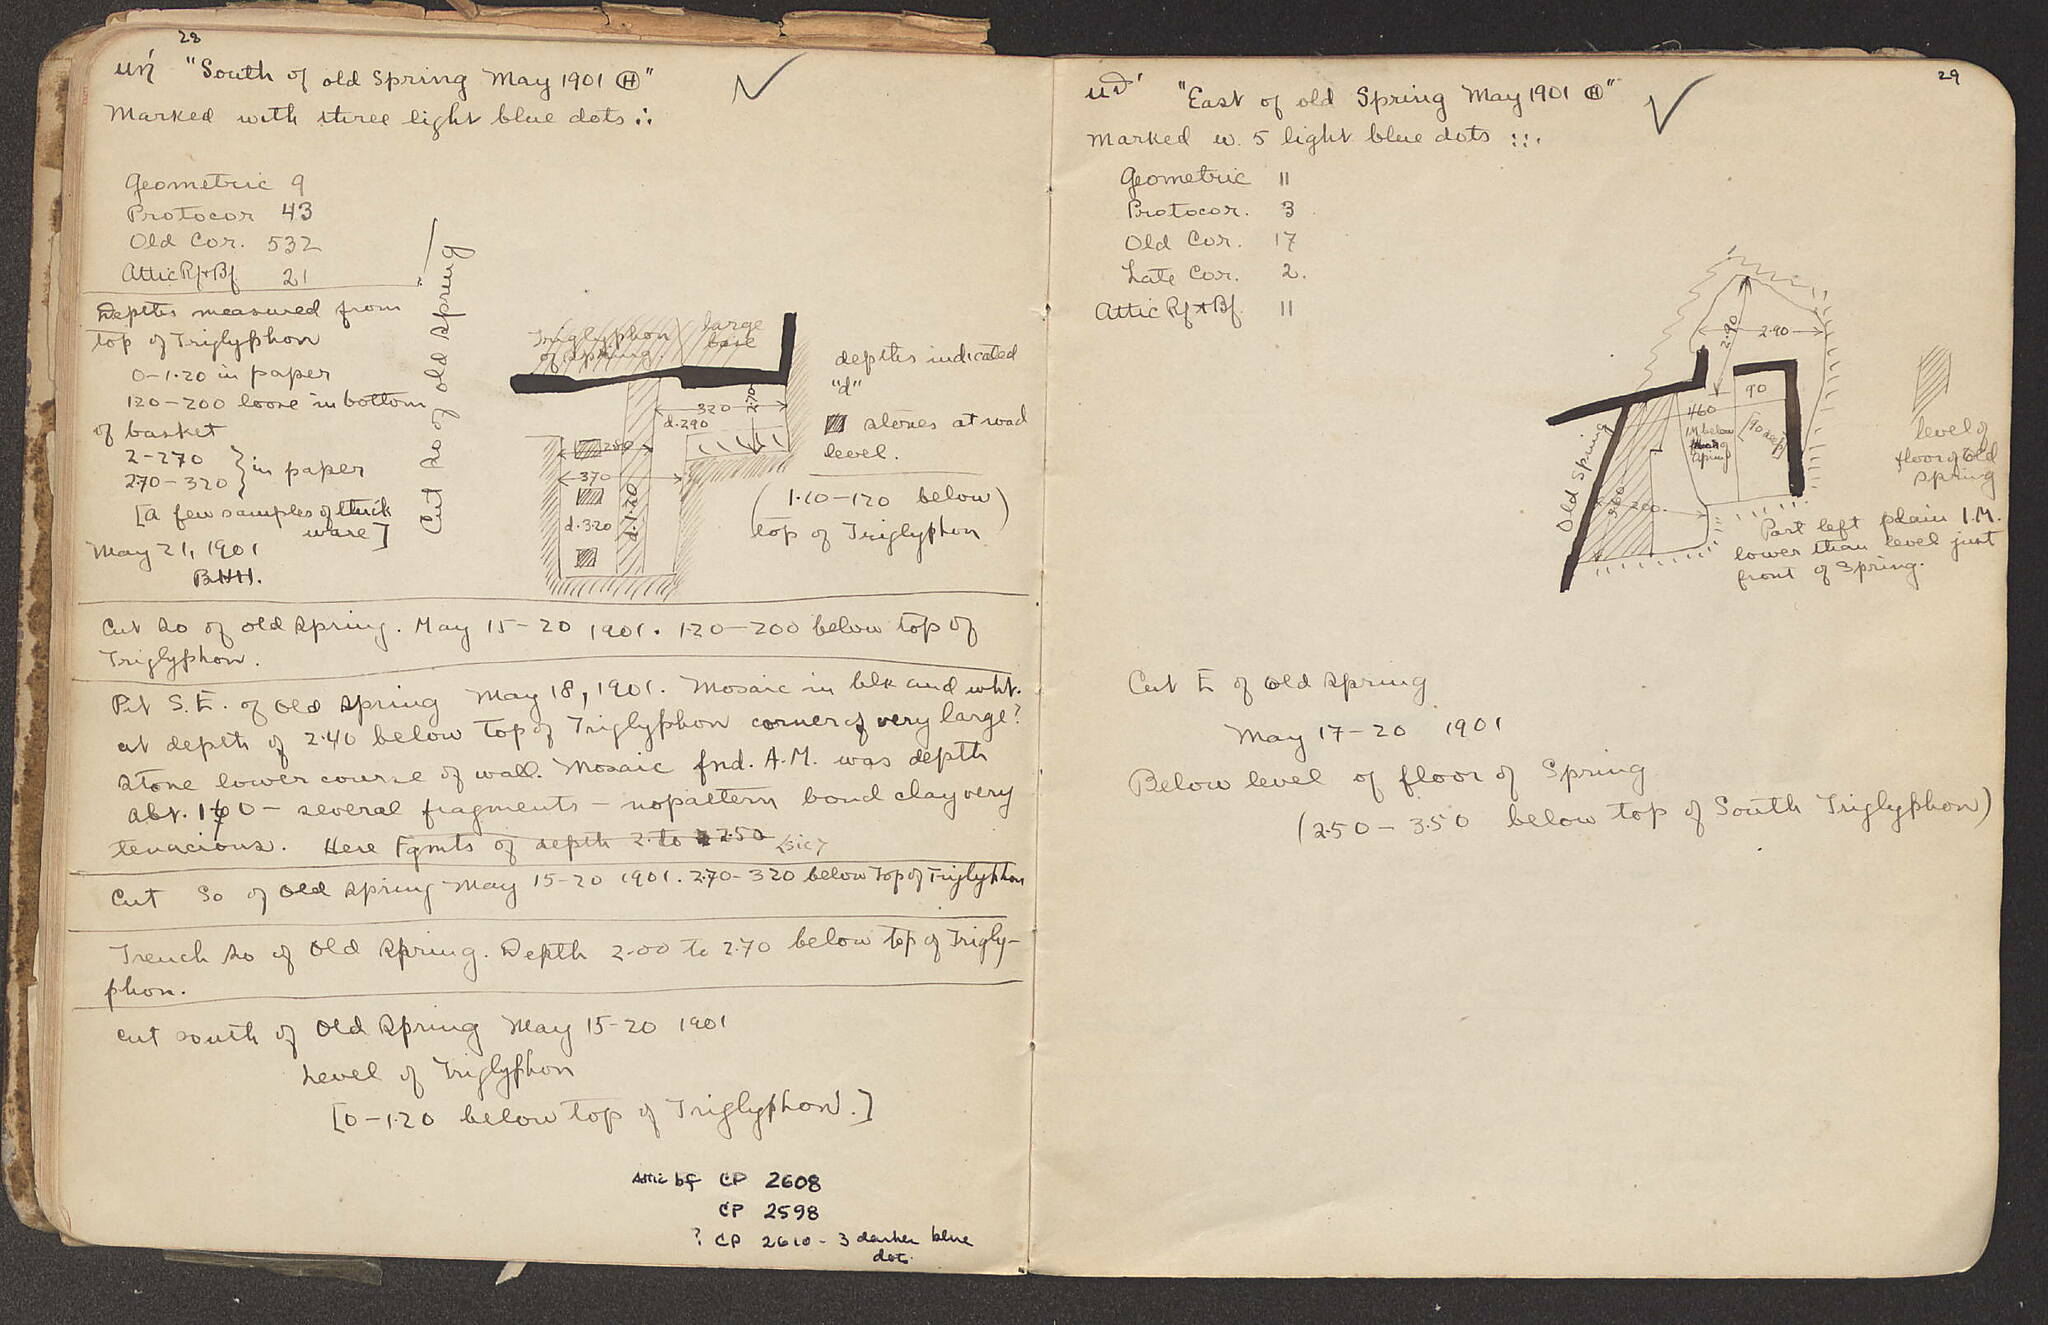 28
μή "South of old Spring May 1901 Ⓗ"
Marked with three light blue dots ∴
Geometric 9
Protocor 43
Old Cor. 532
Attic Rf + Bf 21
Depths measured from
top of Triglyphon
0-1.20 in paper
120-200 loose in bottom
of basket
2-270
270-320 } in paper
[a few samples of thick
ware]
May 21, 1901
BHH.
Cut So of old Spring
Triglyphon
of Spring.
large
base
320
d.290
2.70
280
370
d.3.20
d.1.20
depths indicated
"d"
stones at road
level.
(1.10-120 below
top of Triglyphon)
Cut So of old Spring. May 15-20 1901. 1.20-200 below top of
Triglyphon.
Pit S.E. of old Spring May 18, 1901. Mosaic in blk and wht.
at depth of 2.40 below top of Triglyphon corner of very large?
stone lower course of wall. Mosaic fnd. A.M. was depth
abt. 160 - several fragments - no pattern bond clay very
tenacious. Here Fgmts of depth 2. to 2.50 <sic>
Cut So of Old Spring May 15-20 1901. 2.70-320 below Top of Triglyphon
Trench So of Old Spring. Depth 2.00 to 2.70 below top of Trigly-
phon.
Cut south of Old Spring May 15-20 1901
Level of Triglyphon
[0-1.20 below top of Triglyphon.]
Attic bf CP 2608
CP 2598
? CP 2610 - 3 darker blue
dots.
29
"East of old Spring May 1901 Ⓗ"
Marked w. 5 light blue dots :::.
Geometric 11
Protocor. 3
Old Cor. 17
Late Cor. 2.
Attic Rf + Bf. 11
2.90
2.90
90
460
1M below
Spring
[90 deep]
Old Spring
260.
level of
floor of Old
Spring
Part left plain 1.M.
lower than level just
front of Spring.
Cut E of Old Spring
May 17-20 1901
Below level of floor of Spring
(2.50-3.50 below top of South Triglyphon)